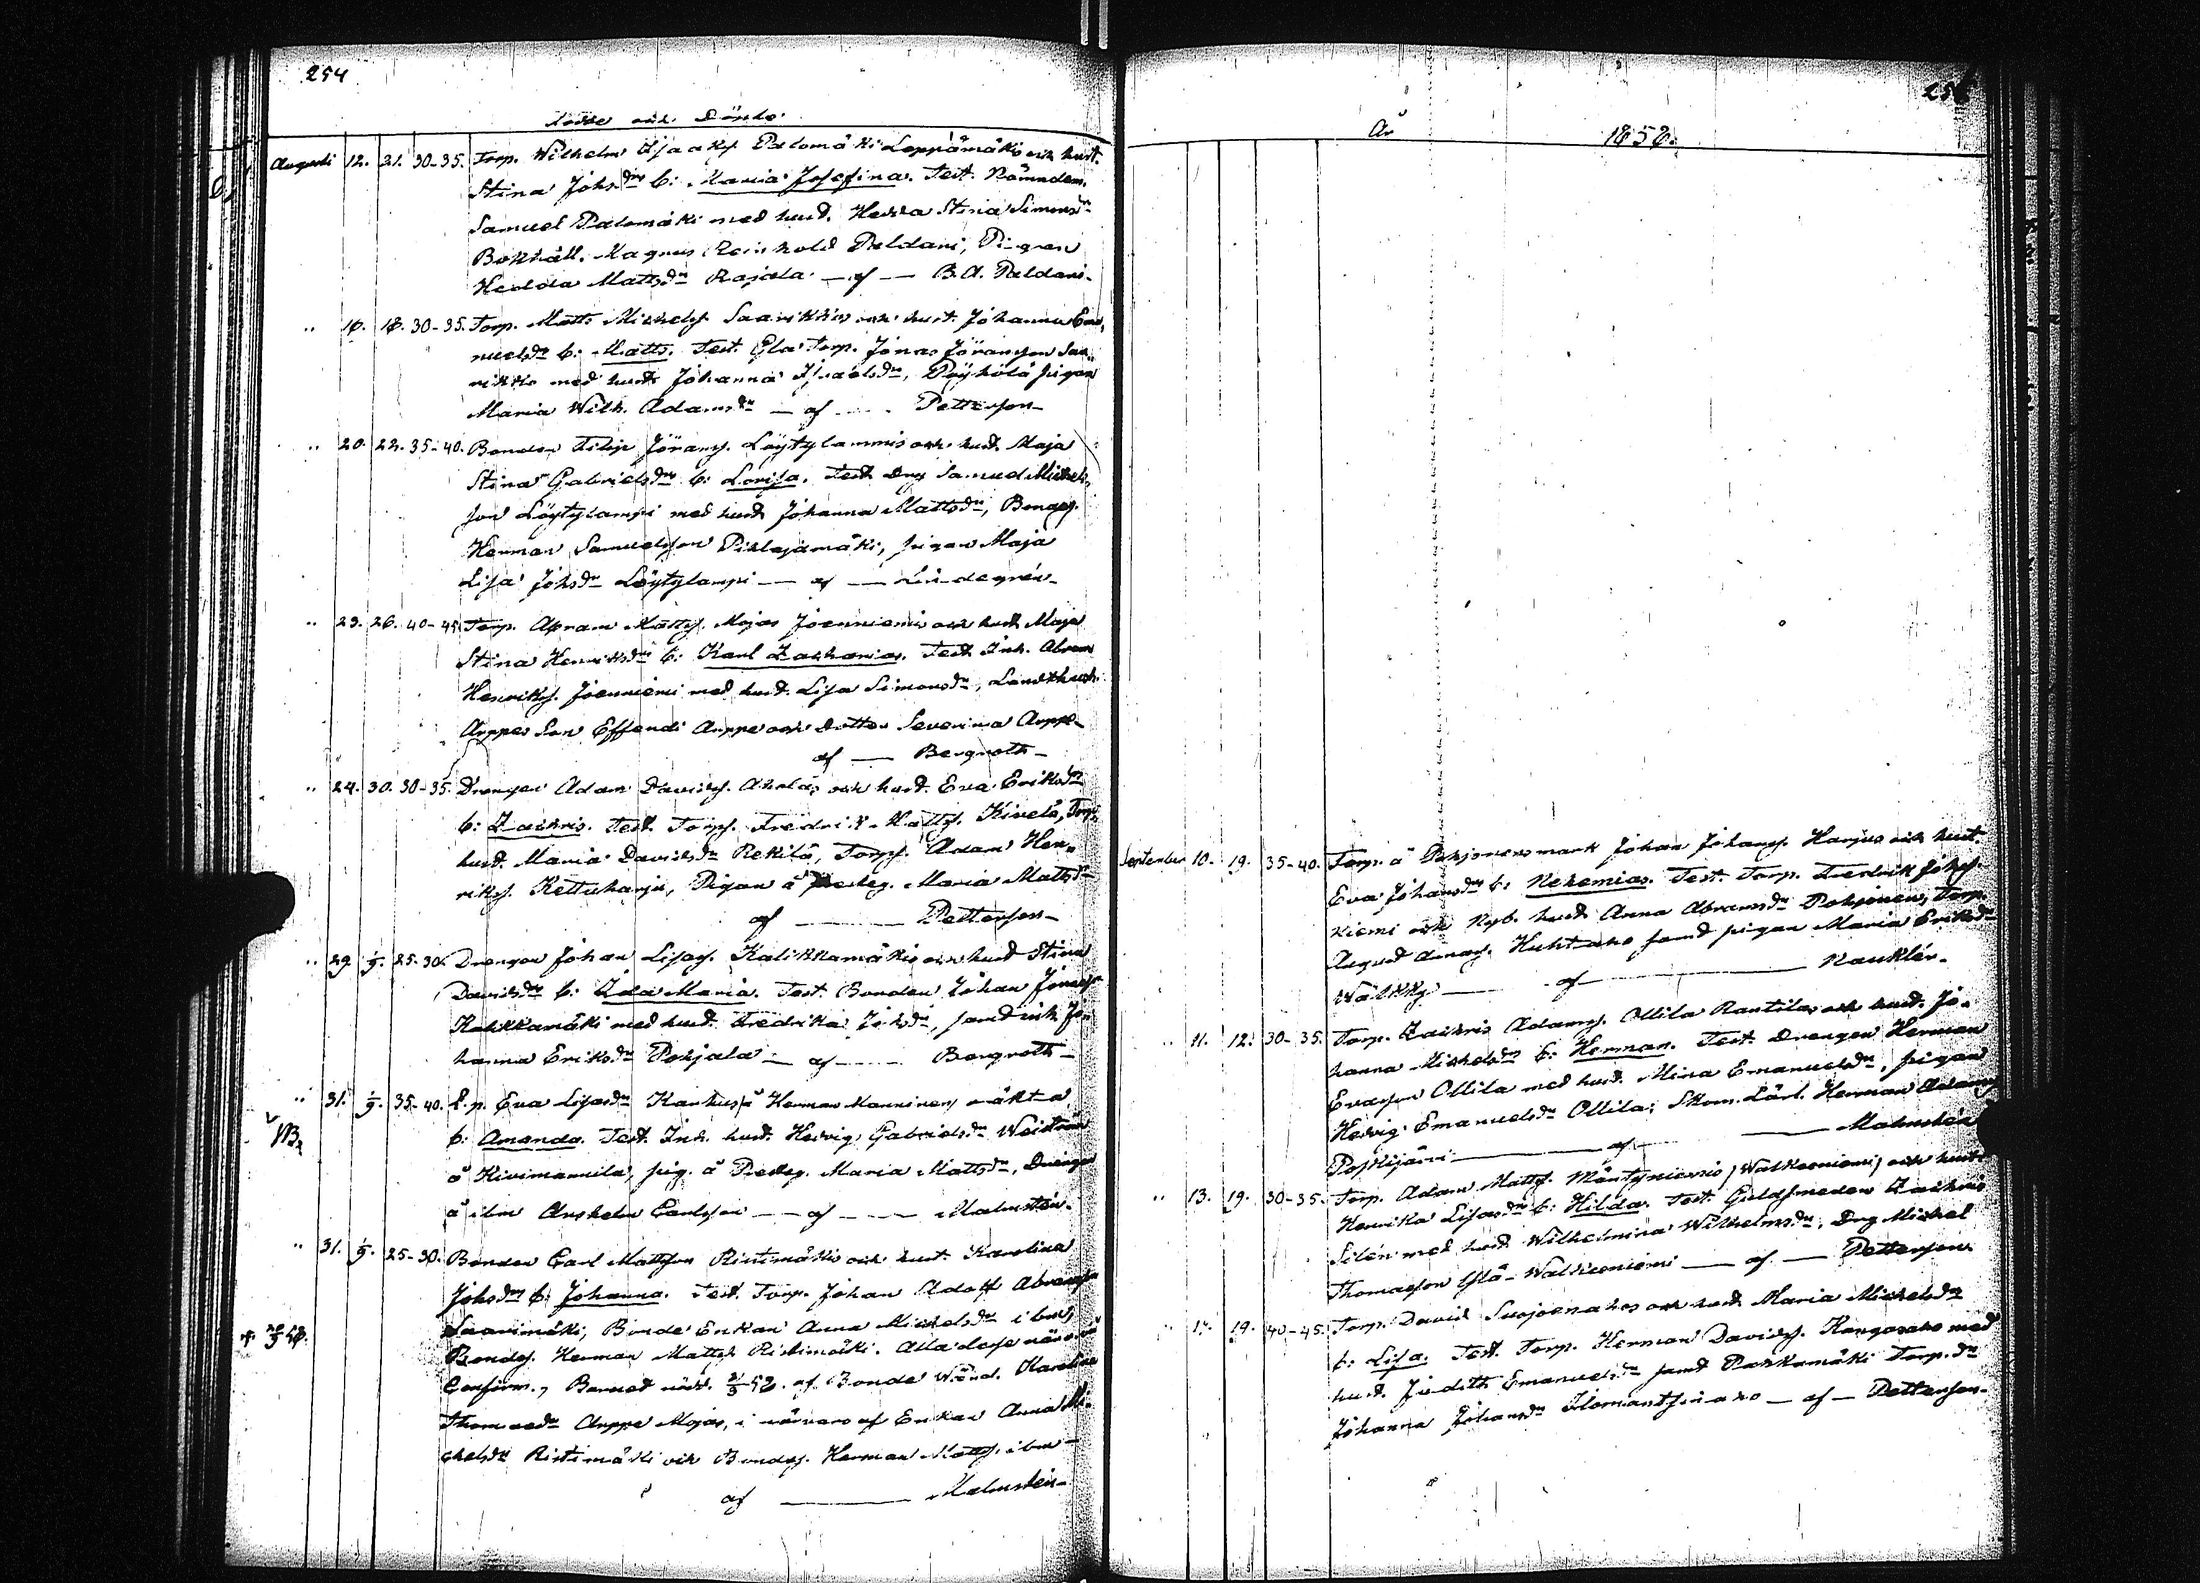 254
Födde och Döpte.
Augusti 12. 21. 30-35. Torp. Wilhelm Isaaks. Palomäki Leppämäki och hust.
Stina Johsdr b: Maria Josefina. Test. Nämndem.
Samuel Palomäki med hust. Hedda Stina Simonsdr
Bokhåll. Magnus Reinhold Paldani, Pigan
Hedda Mattsdr Rajala — af — B.A. Paldani.
" 16. 18. 30-35. Torp. Matts Michels. Saarikko och hust. Johanna Ema,
nuelsdr b: Matts. Test. Torp. Jonas Jöransson Saa,,
rikko med hust. Johanna Isräelsdr, Pöyhölä pigan
Maria Wilh. Adamsdr — af — Pettersson
" 20. 22. 35-40. Bonden Filip Jörans. Löytylammi och hust. Maja
Stina Gabrielsdr b: Lovisa. Test. Drg Samuel Michels,
son Löytylampi med hust. Johanna Mattsdr, Bonas.
Herman Samuelsson Pihlajamäki, pigan Maja
Lisa Johsdr Löytylampi — af — Lindegrén
" 23. 26. 40-45. Torp. Abram Matts. Mojas Joenniemi och hust. Maja
Stina Henriksdr b: Karl Zacharias. Test. Inh. Abram
Henriks. Joenniemi med hust. Lisa Simonsdr,
Arppes Son Effendi Arppe och dotter Severina Arppe
af — Bergroth
" 24. 30. 30-35. Drengen Adam Davids. Ahola, och hust. Eva Eriksdr
b: Zachris. Test. Torps. Fredrik Matts. Kivelä, Torp.
hust. Maria Davidsdr Rekilä, Torps. Adam Hen,,
riks. Kettuharju, Pigan å Presteg. Maria Mattsdr
af — Pettersson
" 29. 1/9. 25-30. Drengen Johan Lisas. Kalikkamäki och hust. Stina
Davidsdr b: Ida Maria. Test. Bonden Johan Jonass.
Kalikkamäki med hust. Fredrika Johsdr, samt inh. Jo
hanna Eriksdr Pohjala — af — Bergroth
" 31. 1/9. 35-40. L.p. Eva Lisasdr Kankus å Herman Manninens mäkt a
NB
b: Amanda. Test. Inh. hust. Hedvig Gabrielsdr Weiström
å Kivimannila, pig. å Presteg. Maria Mattsdr, Drengen
å ibm Anshelm Carlsson — af — Malmstén.
" 31. 1/9. 25-30. Bonden Carl Mattsson Ristimäki och hust. Karolina
Johsdr b: Johanna. Test. Torp. Johan Adolf Abramsson
Saarimäki, Bonde Enkan Anna Michelsdr ibm,
Bonds. Herman Matts. Ristimäki. Alla dessa närvaro vid
Confirm., Barnet nöd. 31/8 58 af Bonde Wärd. Karolina
Thomasdr Arppe Mojas, i närvaro af Enkan Anna Mi-
chelsdr Ristimäki och Bonds. Herman Matts. ibm —
af — Malmstén
År 1858.
September 10. 19. 35-40. Torp. å Pohjonens mark Johan Johans. Harju och hust.
Eva Johansdr b: Nehemias. Test. Torp. Fredrik Johs.
Niemi och Nyb. hust. Anna Abramsdr Pohjonen, Torp.
August Huhtaho samt pigan Maria Eriksdr
Wälkky — af — Nauklér.
" 11. 12. 30-35. Torp. Zachris Adams. Ollila Rantila och hust. Jo-
hanna Michelsdr b: Herman. Test. Drengen Herman
Evasson Ollila med hust. Mina Emanuelsdr, pigan
Hedvig Emanuelsdr Ollila, Skom. Lärl. Herman Adams.
Passijärvi — af — Malmstén
" 13. 19. 30-35. Torp. Adam Matts. Mäntyniemi (Walkeeniemi) och hust.
Henrika Lisasdr b: Hilda. Test. Guldsmeden Zachris
Silén med hust. Wilhelmina Wilhelmsdr, Drg Michel
Thomasson Ylä-Walkeeniemi — af — Pettersson
" 17. 19. 40-45. Torp. David Suojoenaho och hust. Maria Michelsdr
b: Lisa. Test. Torp. Herman Davids. Kangasaho med
hust. Judith Emanuelsdr samt Paskamäki Torp. dr
Johanna Johansdr Ilomantsinaho — af — Pettersson.